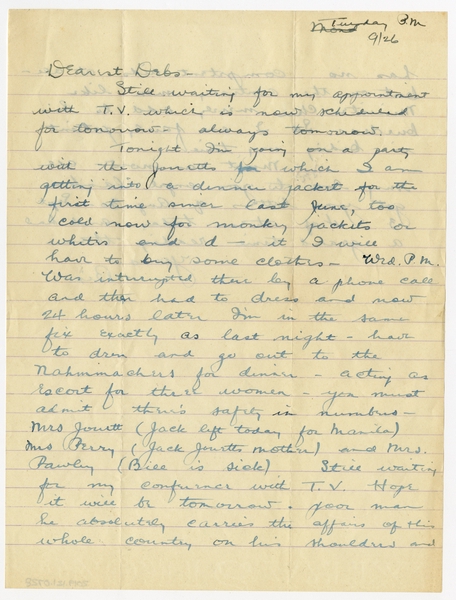 Tuesday P.M
9/26
Dearest Debs -
Still waiting for my appointment
with T.V. which is now scheduled
for tomorrow - always tomorrow.
Tonight I'm going on a party
with the Jouetts for which I am
getting into a dinner jacket for the
first time since last June, too
cold now for monkey jackets or
whites and d - it I will
have to buy some clothes - Wed. P.M.
Was interrupted there by a phone call
and then had to dress and now
24 hours later I'm in the same
fix exactly as last night - have
to dress and go out to the
Nahmmachers for dinner - acting as
Escort for three women - you must
admit there's safety in numbers -
Mrs Jouett (Jack left today for Manila)
Mrs Perry (Jack Jouetts mother) and Mrs.
Pawley (Bill is sick) Still waiting
for my conference with T.V. Hope
it will be tomorrow. poor man
he absolutely carries the affairs of this
whole country on his shoulders and